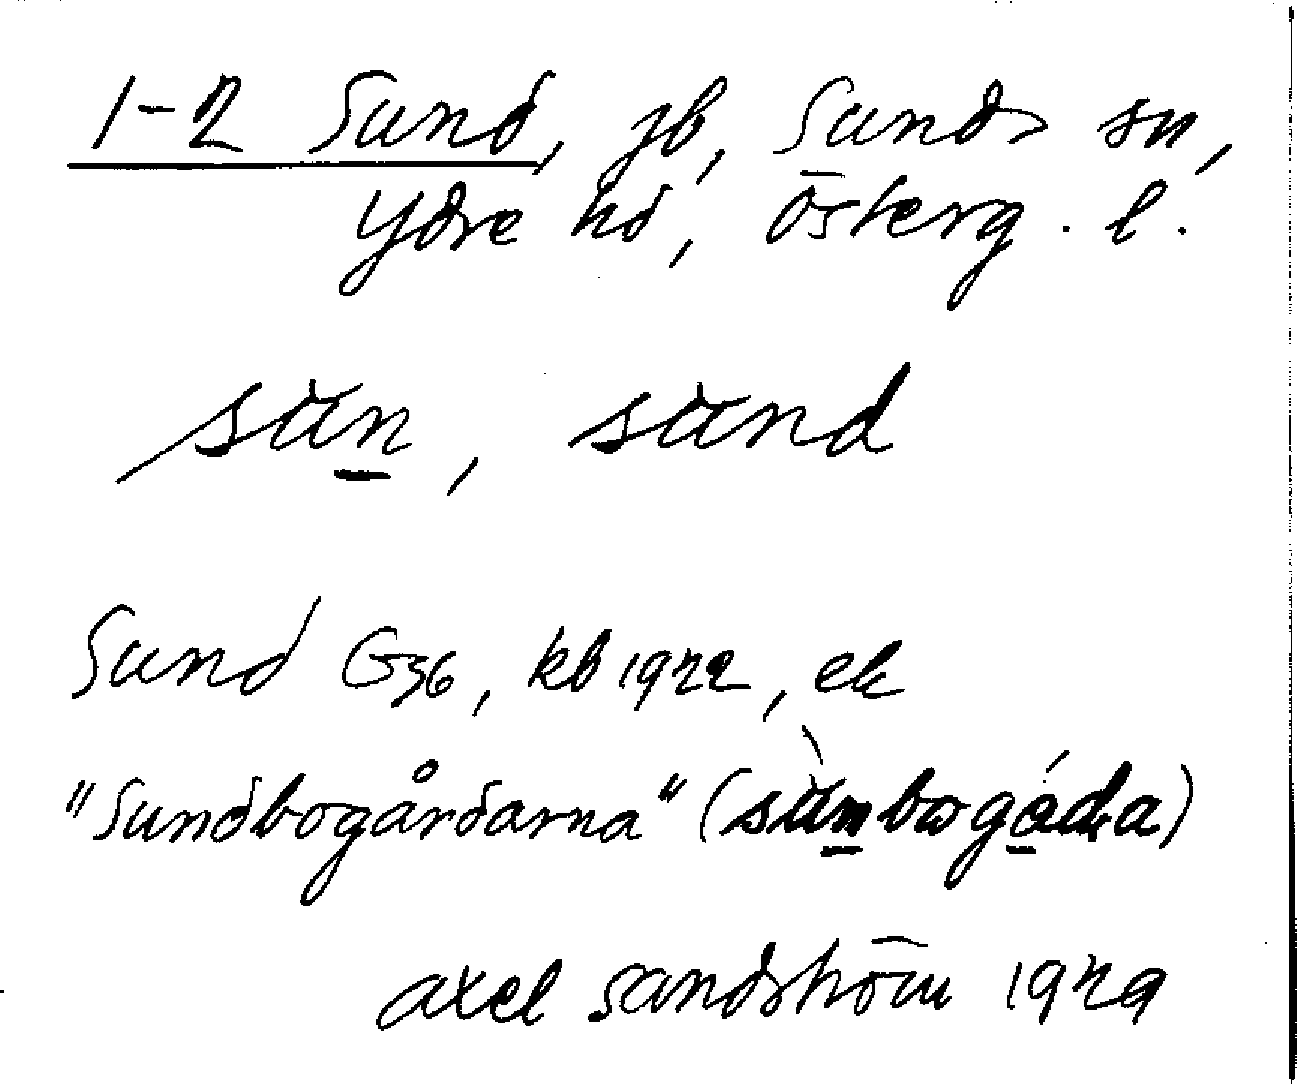 1-2 Sund, jb, Sunds sn,
Ydre hd, Österg. l.
sùn̲, sùnd
Sund G36, kb 1922, ek
"Sundbogårdarna" (sùm̲bωgá̲da)
axel sandström 1929